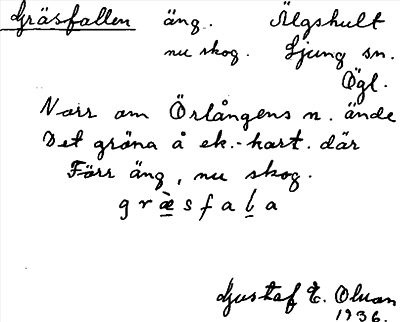 Gräsfallen äng. Älgshult
nu skog. Ljung sn.
Ögl.
Norr om Örlångens n. ände
Det gröna å ek.-kart. där
Förr äng, nu skog.
græ̀sfaḻa
Gustaf E. Olson
1936.